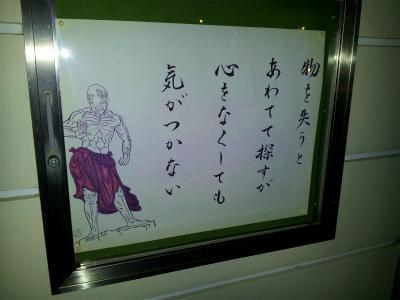 物を失うと
あわてて探すが
心をなくしても
気がつかない